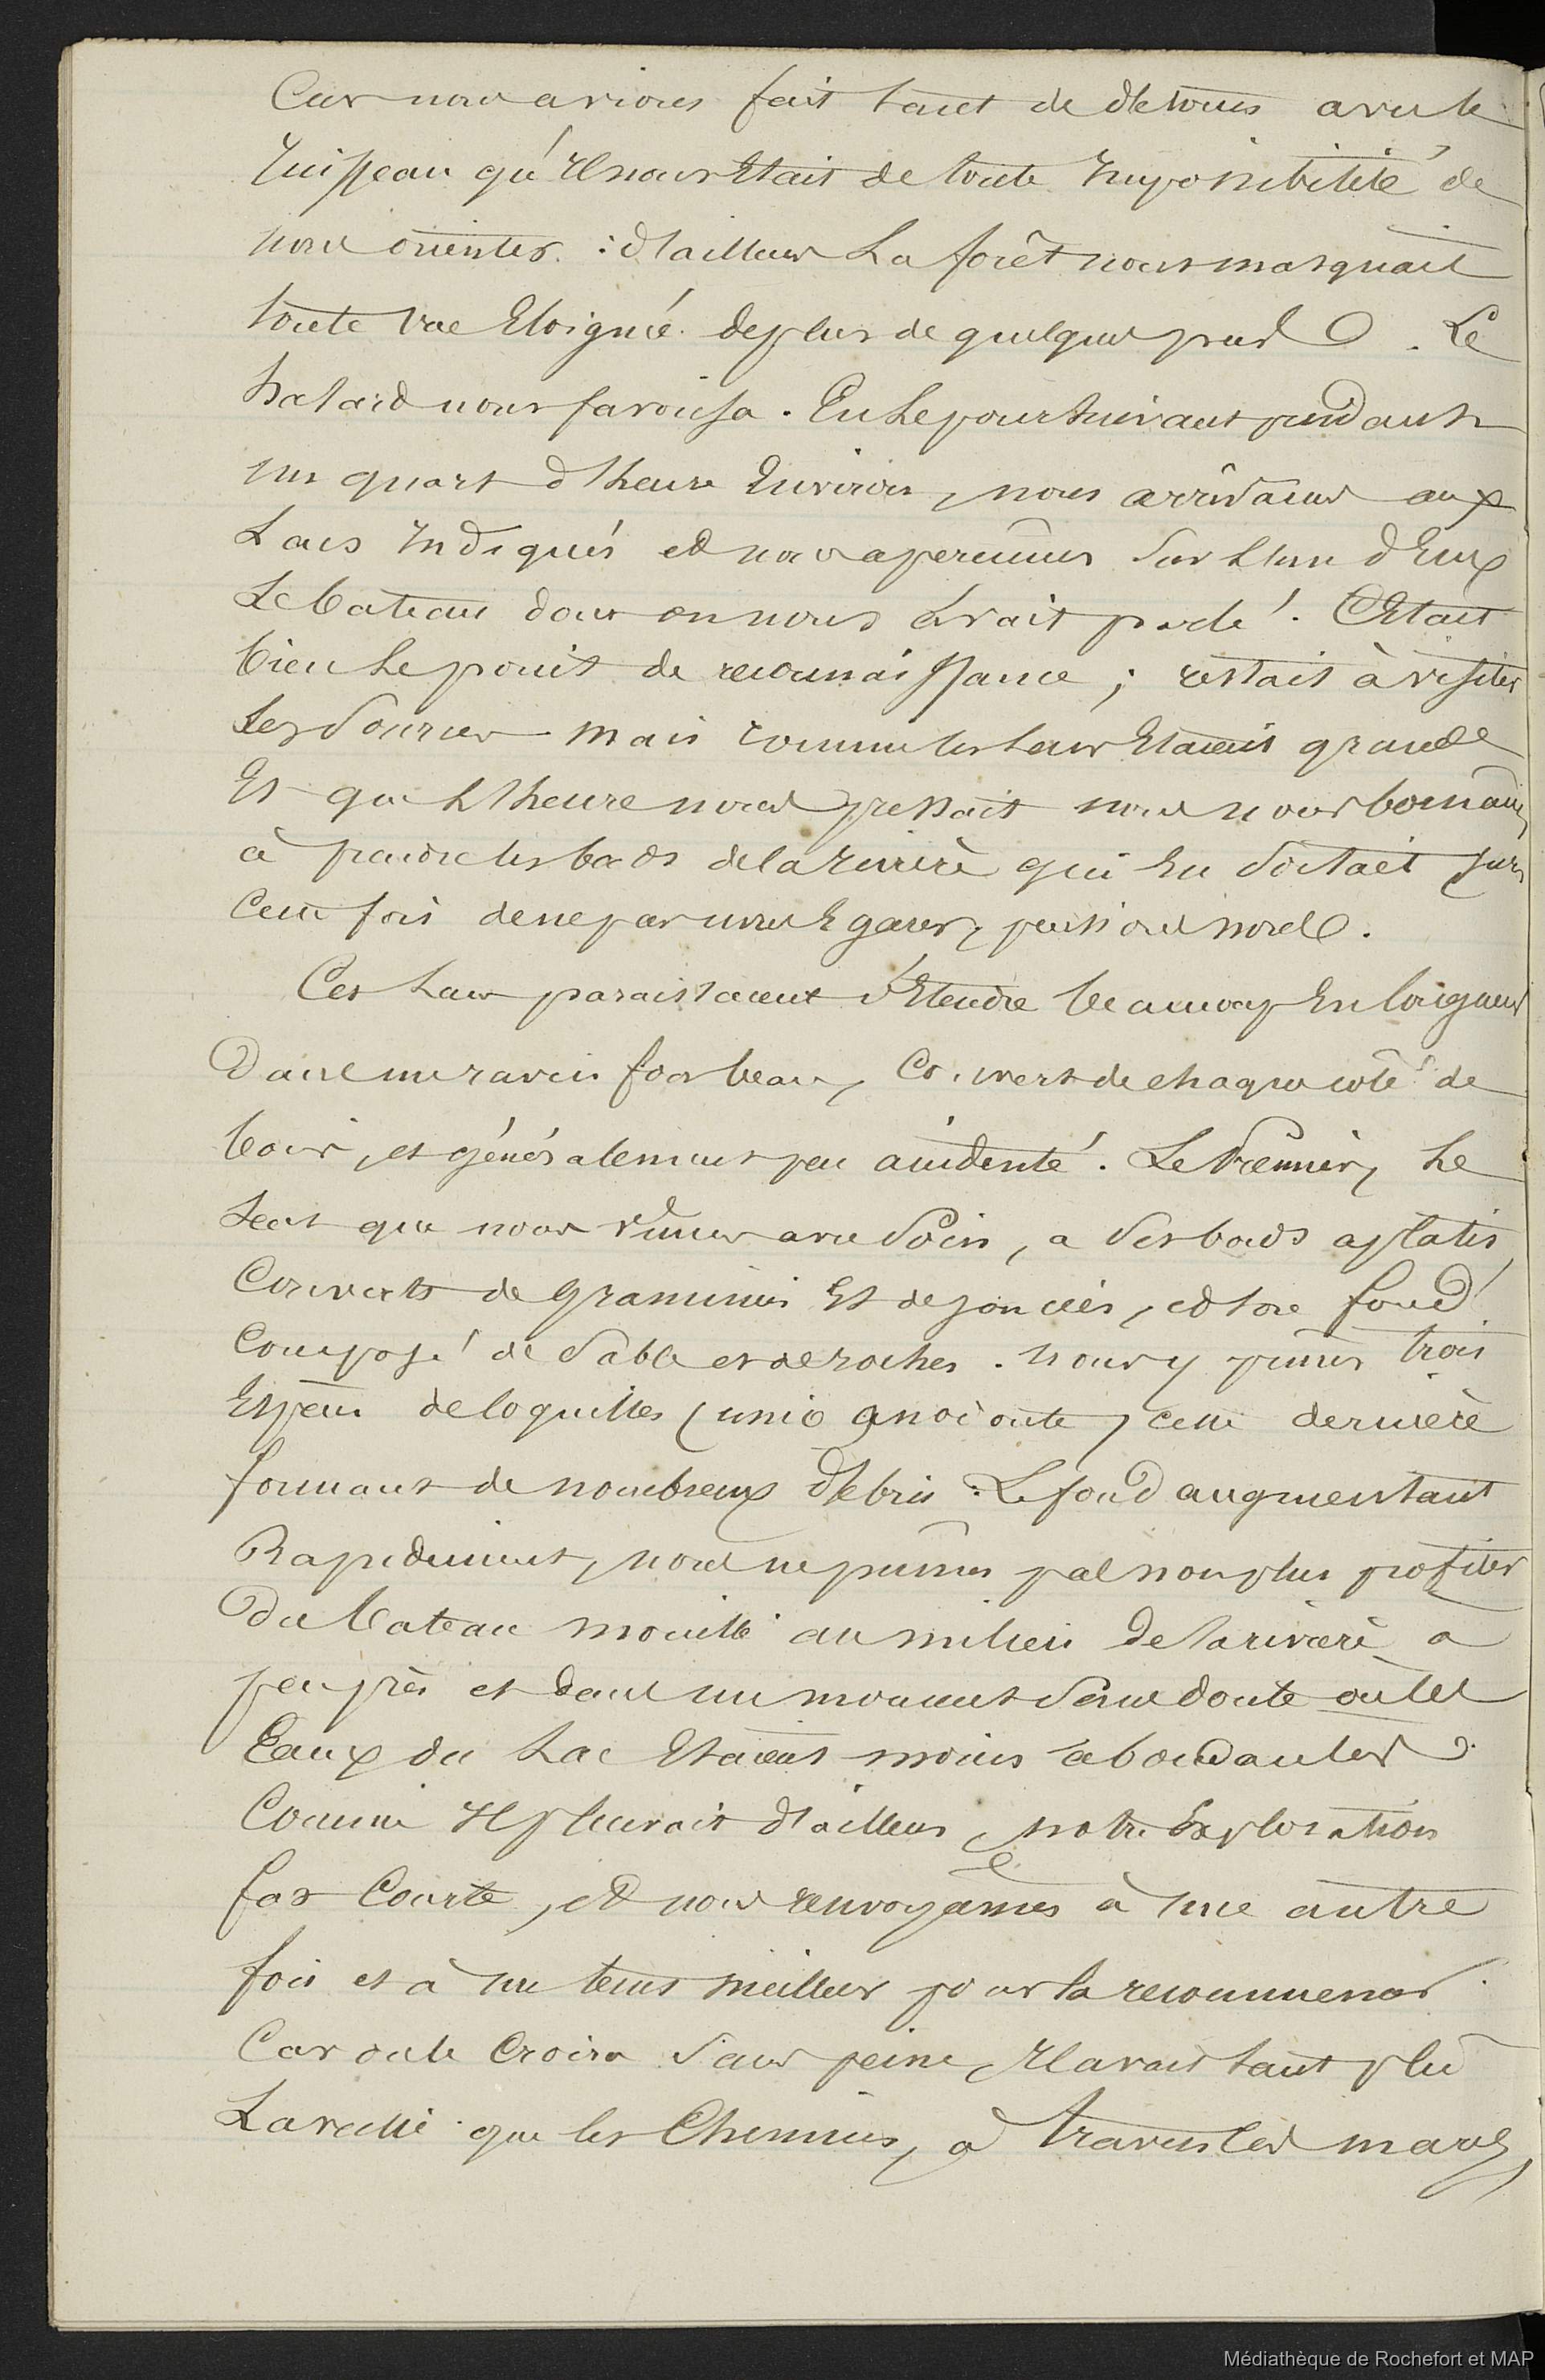 Car nous avions fait tant de détours avec le
ruisseau qu'il nous était de toute impossibilité de
nous orienter. d'ailleurs la forêt nous masquait
toute vue éloignée de plus de quelques pas. Le
hasard nous favorisa. En le poursuivant pendant
un quart d'heure environ, nous arrivâmes aux
Lacs indiqués et nous aperçumes sur l'un d'eux
Le bateau dont on nous avait parlé. C'était
bien le point de reconnaissance; restait à visiter
les sources mais comme les eaux étaient grandes
Et que l'heure nous pressait nous nous bornâmes
à prendre les bords de la rivière qui en sortait surs
cette fois de ne pas nous égarer, pensions nous.
Ces Lacs paraissaient s'étendre beaucoup en longueur
Dans un ravin fort beau, couvert de chaque côté de
bois, et généralement peu accidenté. Le Premier, le
seul que nous vîmes avec soin, a ses bords aplatis,
Couverts de graminées et de joncées, et son fond
Composé de sable et de roches. nous y prîmes trois
Espèces de coquilles (unio anodonte) cette dernière
formant de nombreux débris. Le fond augmentant
Rapidement, nous ne pûmes pas non plus profiter
Du bateau mouillé au milieu de la rivière à
peu près et dans un moment sans doute où les
Eaux du Lac étaient moins abondantes.
Comme il pleuvait d'ailleurs, notre Exploration
fut Courte, et nous renvoyâmes à une autre
fois et à un tems meilleur pour la recommencer.
Car on le croira sans peine, il avait tant plu
La veille que les Chemins, à travers les marais,
Médiathèque de Rochefort et MAP